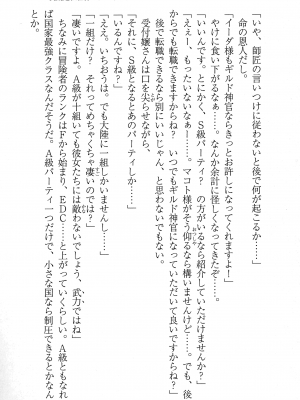 「いや、師匠の言いつけに従わないと後で何が起こるか……」
命の恩人だし。
「イーダ様もギルド神官ならきっとお許しになってくれますよ！」
やけに食い下がるなぁ……。なんか余計に怪しくなってきたぞ……。
「いいんです。とにかく、Ｓ級パーティ？　の方がいるなら紹介していただけませんか？」
「えぇー、もったいないなぁ……。マコト様がそう仰るなら構いませんけど……。でも、後
からでも転職できますからね？　いつでもギルド神官になっていただいて良いですからね？」
後で転職できるなら別にいいじゃん、と思わないでもない。
受付嬢さんは口を尖らせながら、
「それに、Ｓ級となるとあのパーティしか……」
「いるんですね？」
「ええ。いちおうは。でも大陸に一組しかいませんし……」
「一組だけ？　それってめちゃくちゃ凄いのでは？」
「凄いですよ。Ａ級が十組いても彼女たちには敵わないでしょう、武力ではね」
ちなみに冒険者のランクはＦから始まり、ＥＤＣ……と上がっていくらしい。Ａ級ともなれ
ば国家最強クラスなんだそうだ。Ａ級パーティ一つだけで、小さな国なら制圧できるとかなん